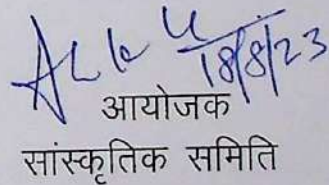 18/8/23
आयोजक
सांस्कृतिक समिति